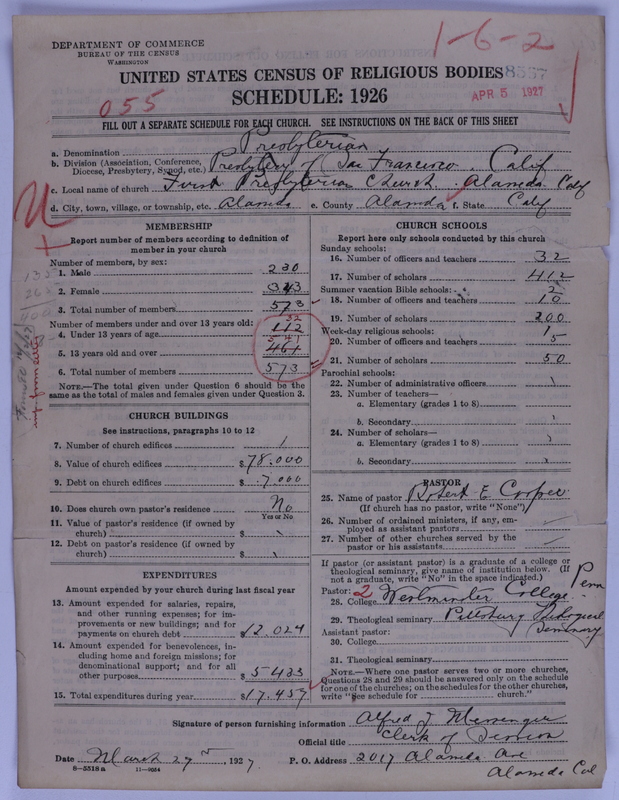 DEPARTMENT OF COMMERCE
BUREAU OF THE CENSUS
WASHINGTON
1-6-2
UNITED STATES CENSUS OF RELIGIOUS BODIES
8557
SCHEDULE: 1926
APR 5 1927
055
FILL OUT A SEPARATE SCHEDULE FOR EACH CHURCH. SEE INSTRUCTIONS ON THE BACK OF THIS SHEET
a. Denomination Presbyterian
b. Division (Association, Conference, Diocese, Presbytery, Synod, etc.) Presbytery of San Francisco. Calif
c. Local name of church First Presbyterian Church. Alameda Calif
d. City, town, village, or township, etc. Alameda e. County Alameda f. State Calif
MEMBERSHIP
Report number of members according to definition of
member in your church
Number of members, by sex:
1. Male 230
2. Female 343
3. Total number of members 573
Number of members under and over 13 years old:
32
4. Under 13 years of age 112
541
5. 13 years old and over 461
6. Total number of members 573
NOTE.—The total given under Question 6 should be the
same as the total of males and females given under Question 3.
CHURCH BUILDINGS
See instructions, paragraphs 10 to 12
7. Number of church edifices 1
8. Value of church edifices $78.000
9. Debt on church edifices $7.000
10. Does church own pastor's residence? No
Yes or No
11. Value of pastor's residence (if owned by
church) $ \
12. Debt on pastor's residence (if owned by
church) $ \
EXPENDITURES
Amount expended by your church during last fiscal year
13. Amount expended for salaries, repairs,
and other running expenses; for im-
provements or new buildings; and for
payments on church debt $12.024
14. Amount expended for benevolences, in-
cluding home and foreign missions; for
denominational support; and for all
other purposes $5433
15. Total expenditures during year $17.457
CHURCH SCHOOLS
Report here only schools conducted by this church
Sunday schools:
16. Number of officers and teachers 32
17. Number of scholars 412
Summer vacation Bible schools: 2
18. Number of officers and teachers 10
19. Number of scholars 200
Week-day religious schools: 1
20. Number of officers and teachers 5
21. Number of scholars 50
Parochial schools:
22. Number of administrative officers \
23. Number of teachers—
a. Elementary (grades 1 to 8) \
b. Secondary \
24. Number of scholars—
a. Elementary (grades 1 to 8) \
b. Secondary \
PASTOR
25. Name of pastor Robert E
(If church has no pastor, write "None")
26. Number of ordained ministers, if any, em-
ployed as assistant pastors
27. Number of other churches served by the
pastor or his assistants
If pastor (or assistant pastor) is a graduate of a college or
theological seminary, give name of institution below. (If
not a graduate, write "No" in the space indicated.)
Pastor: 2
28. College Westminster College. Penn
29. Theological seminary Pittsburg Theological Seminary
Assistant pastor:
30. College
31. Theological seminary
NOTE.—Where one pastor serves two or more churches,
Questions 28 and 29 should be answered only on the schedule
for one of the churches; on the schedules for the other churches,
write "See schedule for church."
Signature of person furnishing information Alfred J. Messenger
Official title Clerk of Session
Date March 29 1927 P. O. Address 2017 Alameda Ave
8-5518a 11-9054
Alameda Cal